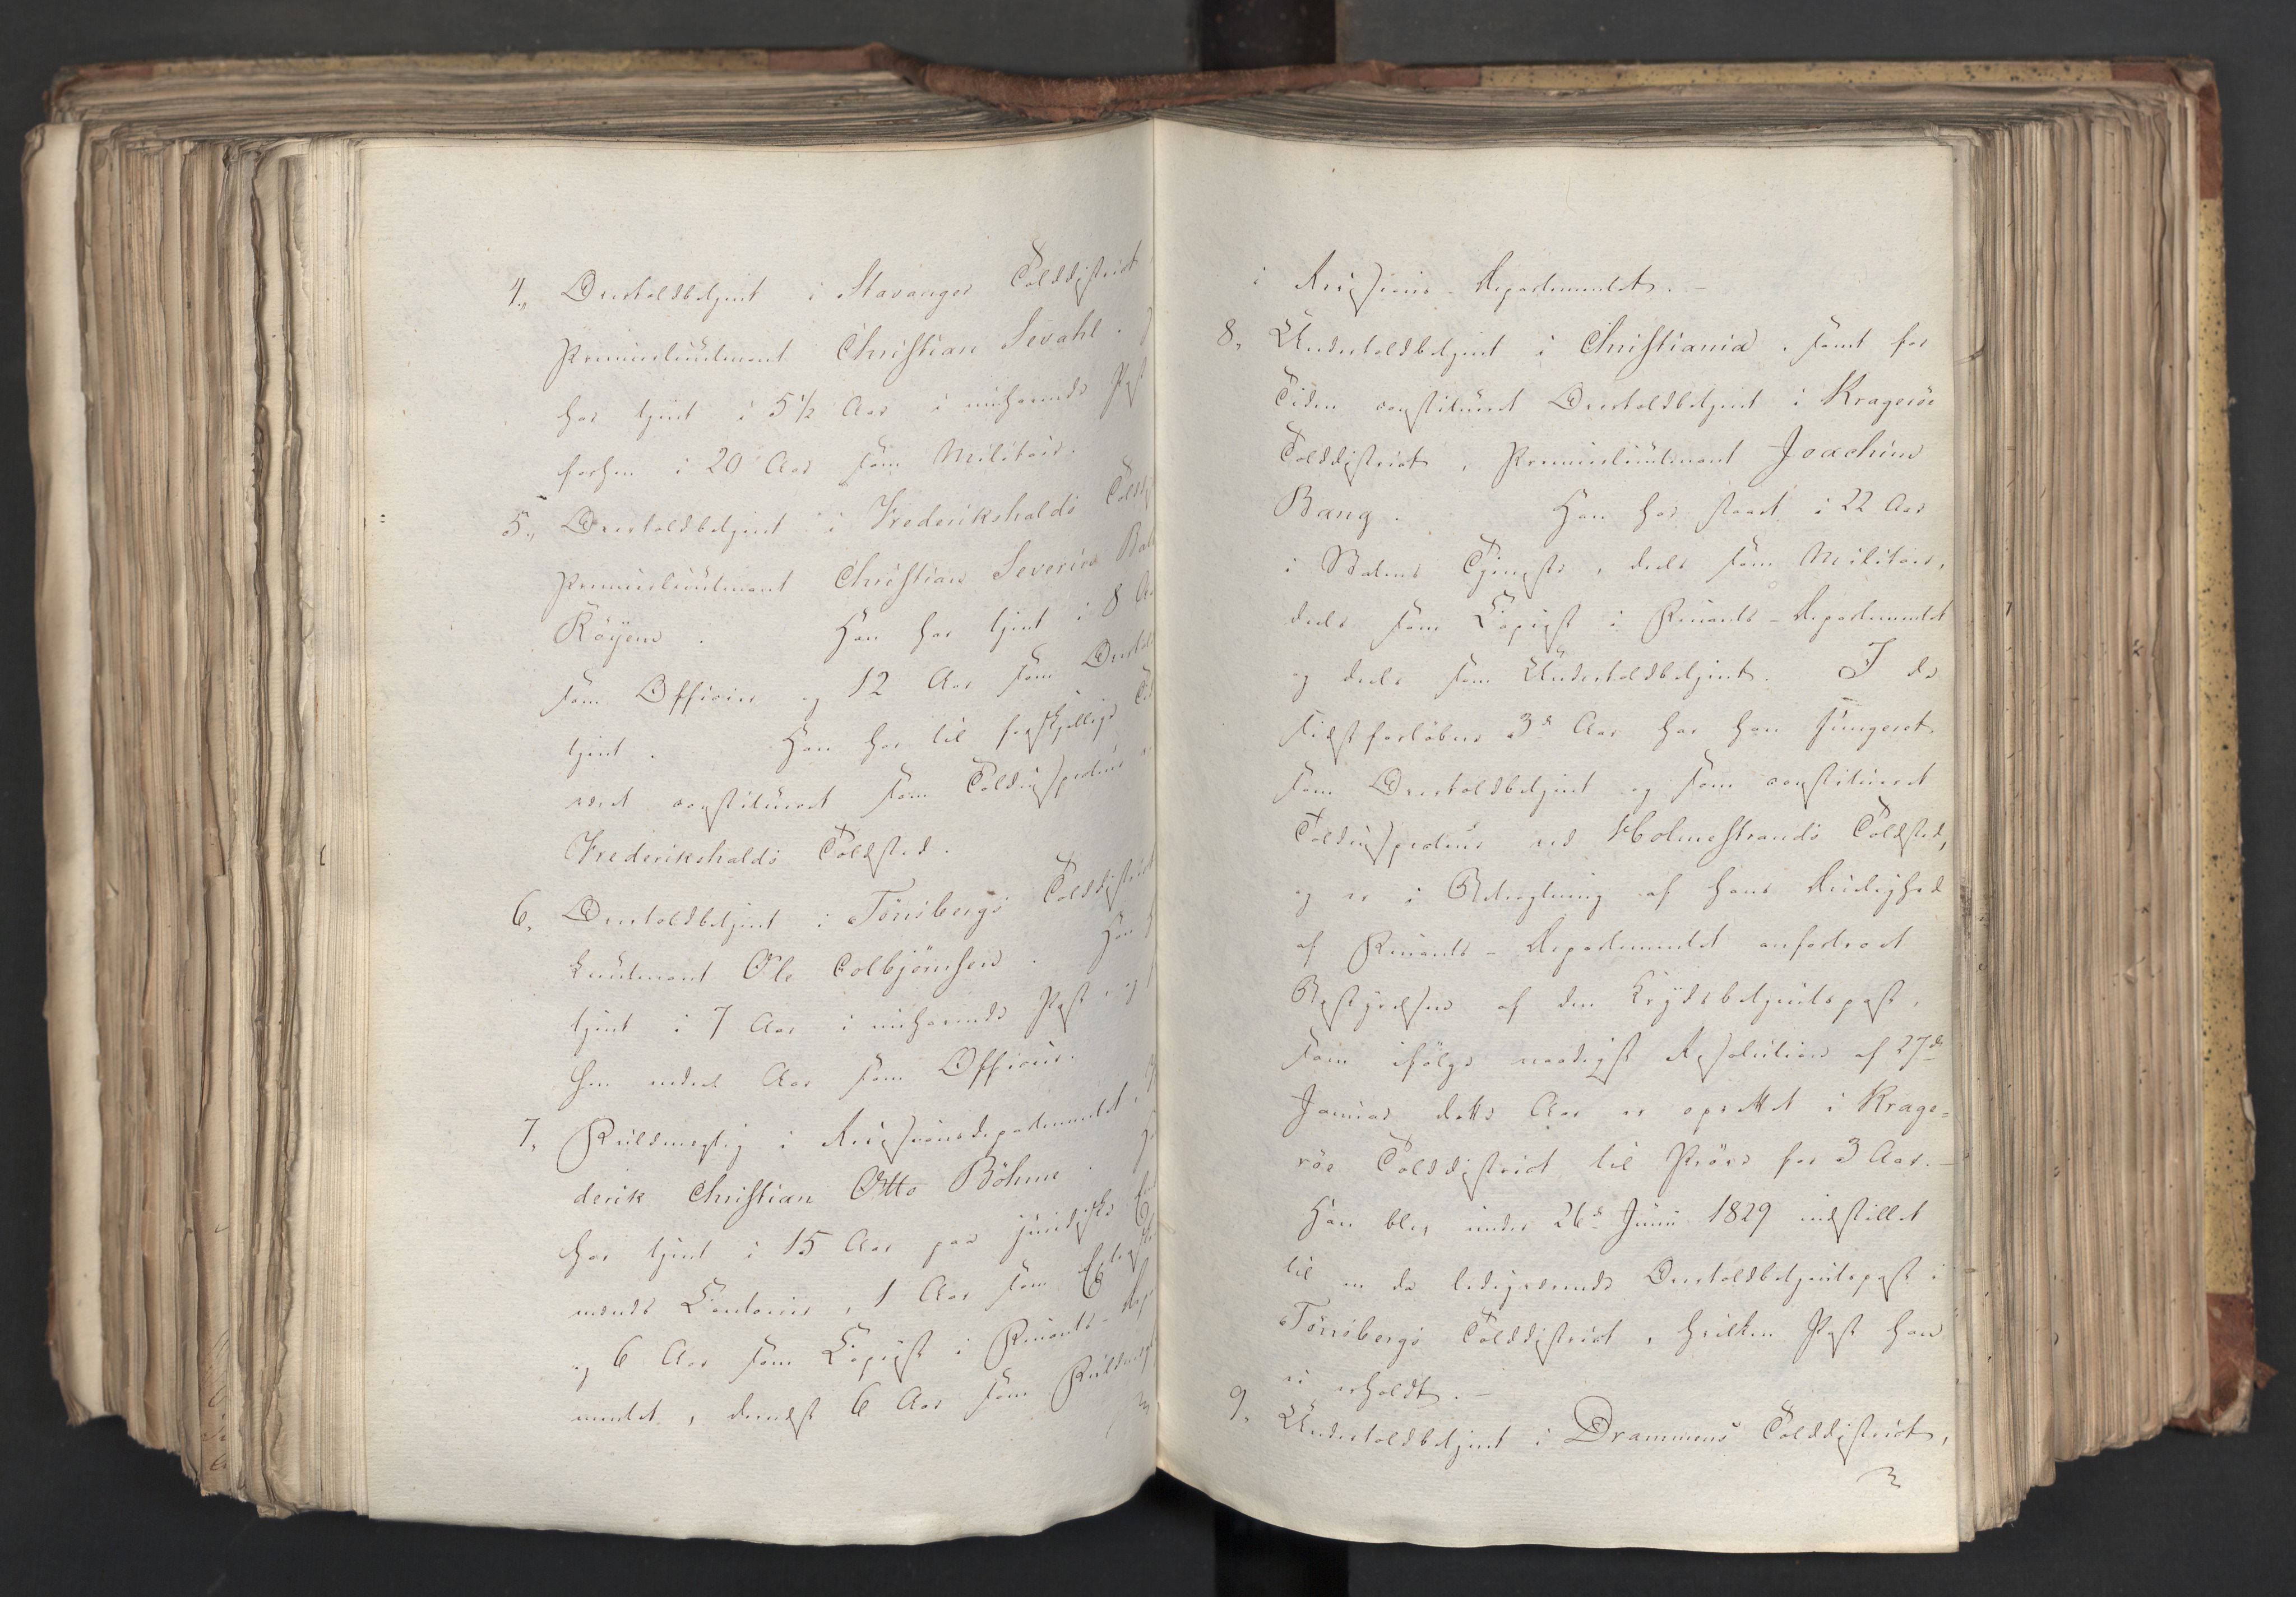 4., Overtoldbetjent i Stavanger Tolddistrict,
Premierlieutenant Christian Sevahl.
har tjent i 5 1/2 Aar i nuhavende Post
forhen i 20 Aar som Militair.
5., Overtoldbetjent i Frederikshalds Toldd
Premierlieutenant Christian Severin
Röyem. Han har tjent i 8 Aar
som Officier og 12 Aar som Overtold
tjent. Han har til forskjellige
været constitueret som Toldinspecteur
Frederikshalds Toldsted.
6, Overtoldbetjent i Tönsbergs Tolddistrict
Lieutenant Ole Colbjörnsen. Han
tjent i 7 Aar i nuhavende Post, og
hen endeel Aar som Officier.
7, Fuldmegtig i Revisionsdepartementet,
derik Christian Otto Böhme.
har tjent i 15 Aar paa juridiske
mænds Contoirer, 1 Aar som
og 6 Aar som Copiist i Finants-Depar
mentet, dernæst 6 Aar som Fuldmegt
i Revisions-Departementet.-
8, Undertoldbetjent i Christiania, samt for
Tiden constitueret Overtoldbetjent i Krageröe
Tolddistrict, Premierlieutenant Joachim
Bang. Han har staaet i 22 Aar
i Statens Tjeneste, deels som Militair,
deels som Copiist i Finants-Departementet
og deels som Undertoldbetjent. I de
sidstforløbne 3de Aar har han fungeret
som Overtoldbetjent og som constitueret
Toldinspecteur ved Holmestrands Toldsted,
og er i Betragtning af hans Duelighed
af Finants-Departementet anfordret
Bestyrelsen af den Krydsbetjentspost,
som ifölge naadigst Resolution af 27de
Januar dette Aar er oprettet i Krage-
röe Tolddistrict til Pröve for 3 Aar.-
Han blev under 26de Juni 1829 indstillet
til en da ledigværende Overtoldbetjentspost i
Tönsbergs Tolddistrict, hvilken Post han
ei erholdt.-
9, Undertoldbetjent i Drammens Tolddistrict,